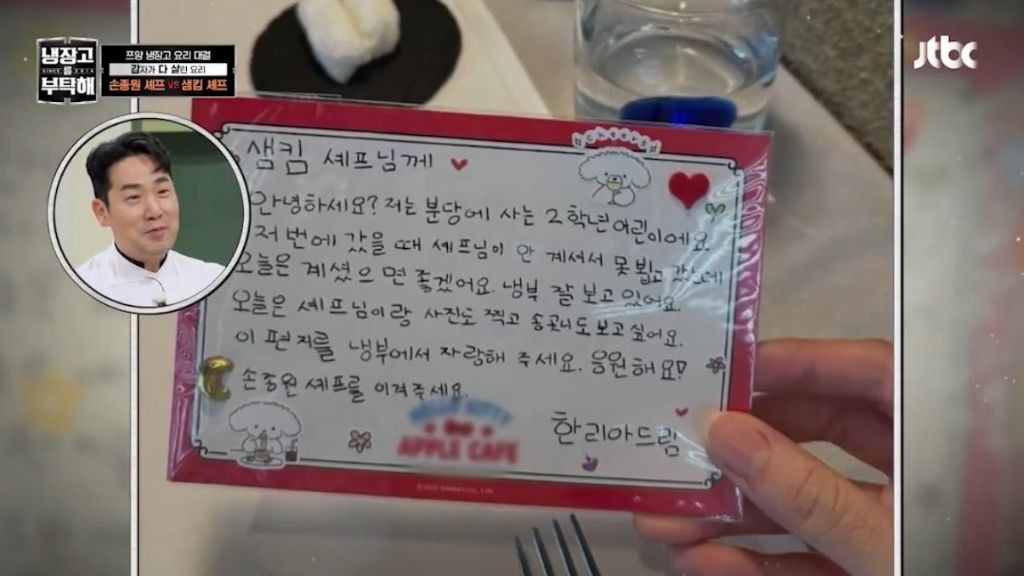 냉장고
SINCE 2014
를
부탁해
쯔양 냉장고 요리 대결
감자가 다 살린 요리
손종원 셰프 VS 샘킴 셰프
jtbc
샘킴 셰프님께
안녕하세요? 저는 분당에 사는 2학년 어린이에요.
저번에 갔을 때 셰프님이 안 계셔서 못 뵙고 갔는데
오늘은 계셨으면 좋겠어요. 냉부 잘 보고 있어요.
오늘은 셰프님이랑 사진도 찍고 송곳니도 보고 싶어요.
이 편지를 냉부에서 자랑해 주세요. 응원해요!
손종원 셰프를 이겨주세요.
한리아드림
HELLO KITTY
APPLE CAFE